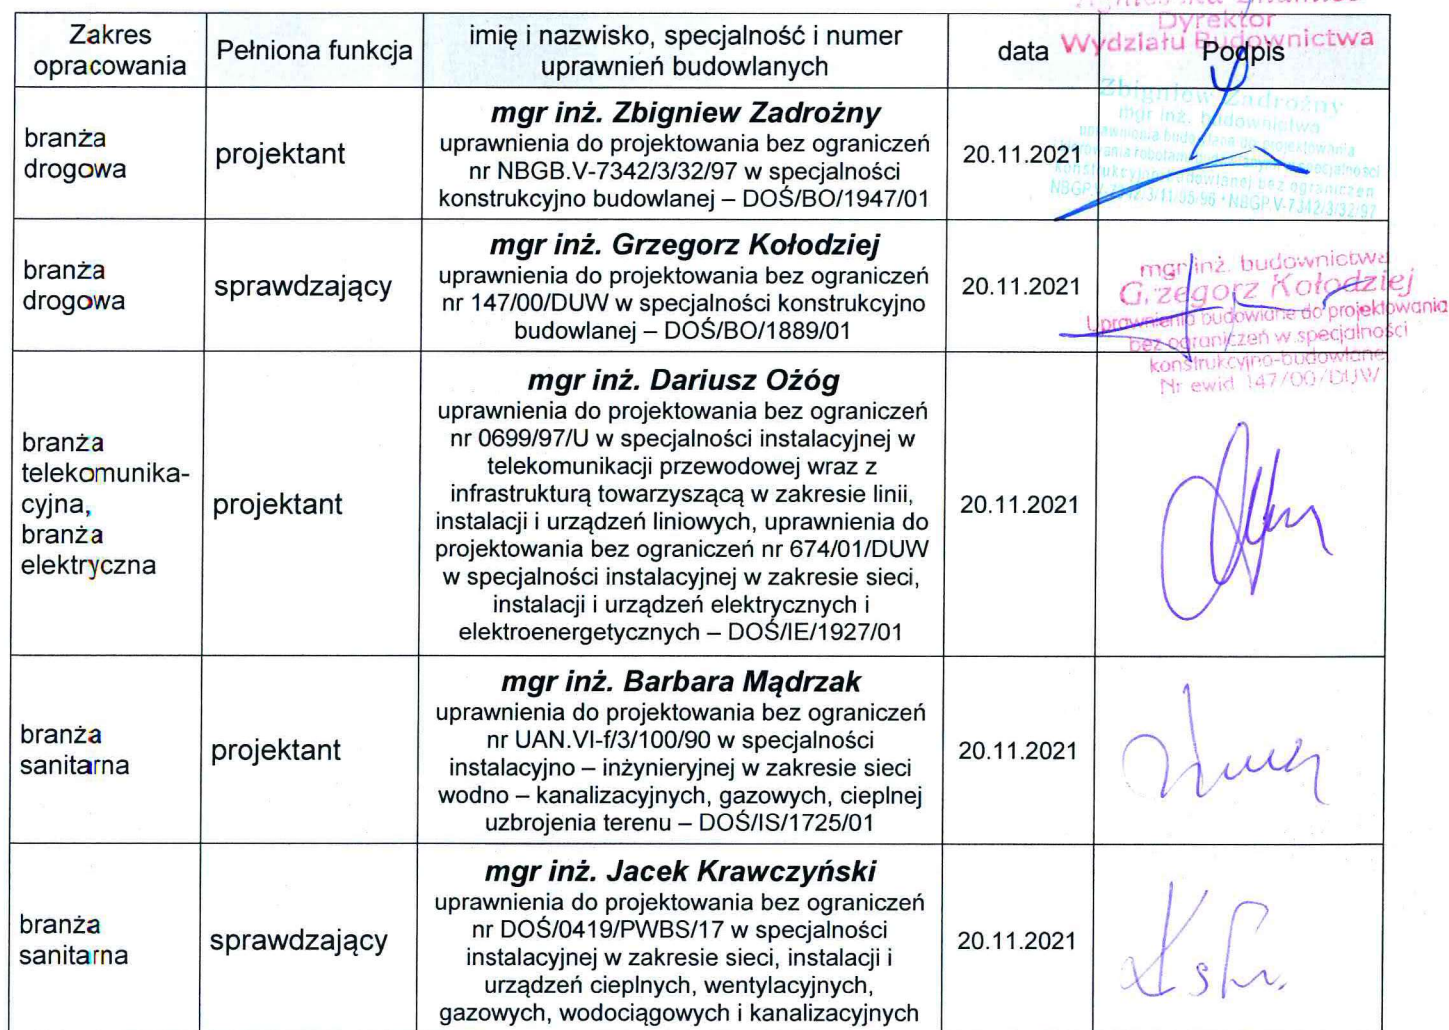 Dyrektor
Wydziału Budownictwa
Zakres
opracowania
Pełniona funkcja
imię i nazwisko, specjalność i numer
uprawnień budowlanych
data
Podpis
branża
drogowa
projektant
mgr inż. Zbigniew Zadrożny
uprawnienia do projektowania bez ograniczeń
nr NBGB.V-7342/3/32/97 w specjalności
konstrukcyjno budowlanej – DOŚ/BO/1947/01
20.11.2021
Zbigniew Zadrożny
mgr inż. budownictwa
uprawnienia budowlane do projektowania
konstrukcyjno budowlanej bez ograniczeń
NBGP.V-7342/3/32/97
branża
drogowa
sprawdzający
mgr inż. Grzegorz Kołodziej
uprawnienia do projektowania bez ograniczeń
nr 147/00/DUW w specjalności konstrukcyjno
budowlanej – DOŚ/BO/1889/01
20.11.2021
mgr inż. budownictwa
Grzegorz Kołodziej
Uprawnienia budowlane do projektowania
bez ograniczeń w specjalności
konstrukcyjno-budowlanej
Nr ewid 147/00/DUW
branża
telekomunika-
cyjna,
branża
elektryczna
projektant
mgr inż. Dariusz Ożóg
uprawnienia do projektowania bez ograniczeń
nr 0699/97/U w specjalności instalacyjnej w
telekomunikacji przewodowej wraz z
infrastrukturą towarzyszącą w zakresie linii,
instalacji i urządzeń liniowych, uprawnienia do
projektowania bez ograniczeń nr 674/01/DUW
w specjalności instalacyjnej w zakresie sieci,
instalacji i urządzeń elektrycznych i
elektroenergetycznych – DOŚ/IE/1927/01
20.11.2021
branża
sanitarna
projektant
mgr inż. Barbara Mądrzak
uprawnienia do projektowania bez ograniczeń
nr UAN.VI-f/3/100/90 w specjalności
instalacyjno – inżynieryjnej w zakresie sieci
wodno – kanalizacyjnych, gazowych, cieplnej
uzbrojenia terenu – DOŚ/IS/1725/01
20.11.2021
branża
sanitarna
sprawdzający
mgr inż. Jacek Krawczyński
uprawnienia do projektowania bez ograniczeń
nr DOŚ/0419/PWBS/17 w specjalności
instalacyjnej w zakresie sieci, instalacji i
urządzeń cieplnych, wentylacyjnych,
gazowych, wodociągowych i kanalizacyjnych
20.11.2021